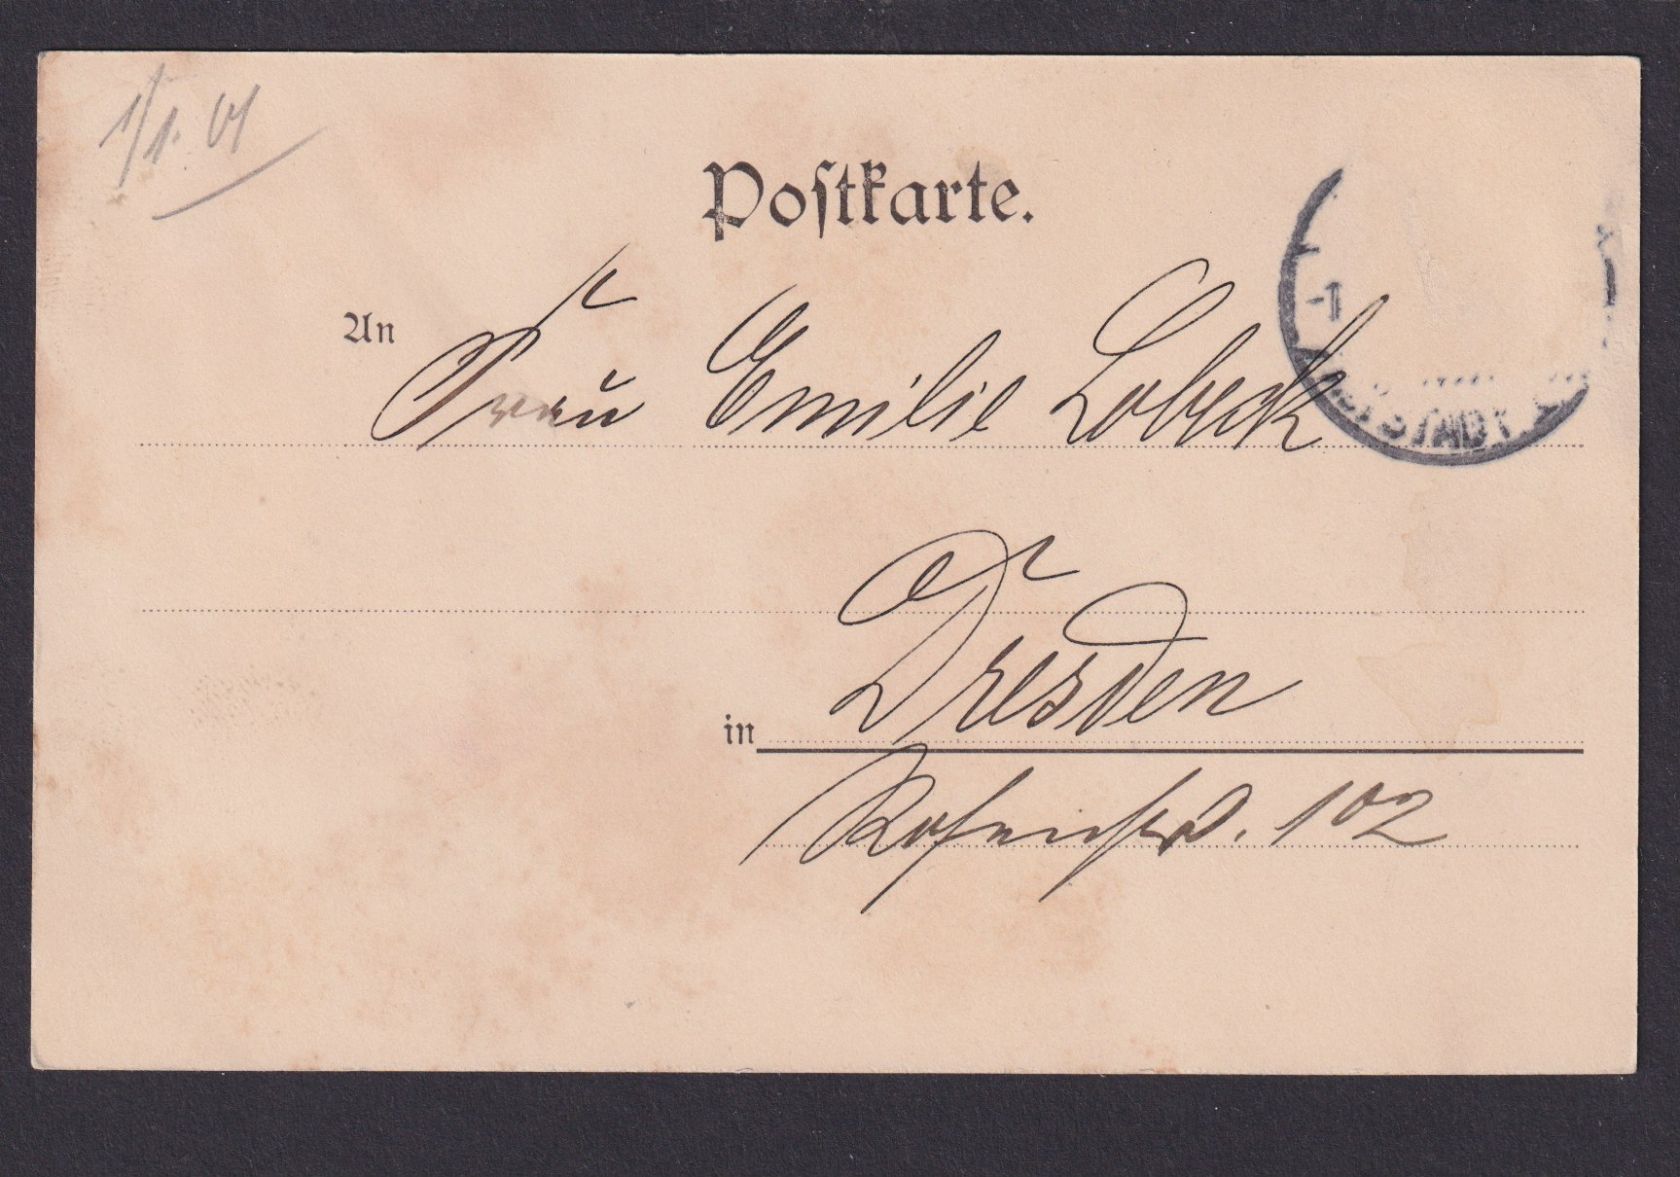 1/1. 01
Postkarte.
An Frau Emilie Lobeck
-1
STADT
in Dresden
Rosenstr. 102